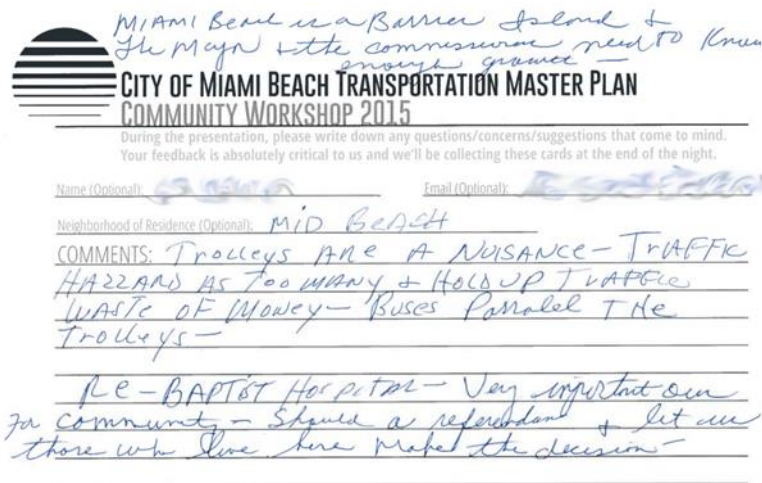 MIAMI Beach is a Barrier Island &
The Mayn & the commissioners need to Know
enough growth —
CITY OF MIAMI BEACH TRANSPORTATION MASTER PLAN
COMMUNITY WORKSHOP 2015
During the presentation, please write down any questions/concerns/suggestions that come to mind.
Your feedback is absolutely critical to us and we'll be collecting these cards at the end of the night.
Name (Optional): Email (Optional):
Neighborhood of Residence (Optional): MID BEACH
COMMENTS: Trolleys ARe A NUISANCE — TrAFFIC
HAZZARD AS TOO MANY & HOLD UP TRAFFIC
WASTE OF Money — Buses Parralel THe
Trolleys —
Re — BAPTIST HOSPITAL — Very important our
For community — Should a referendam & let us
those who live here make the decision —